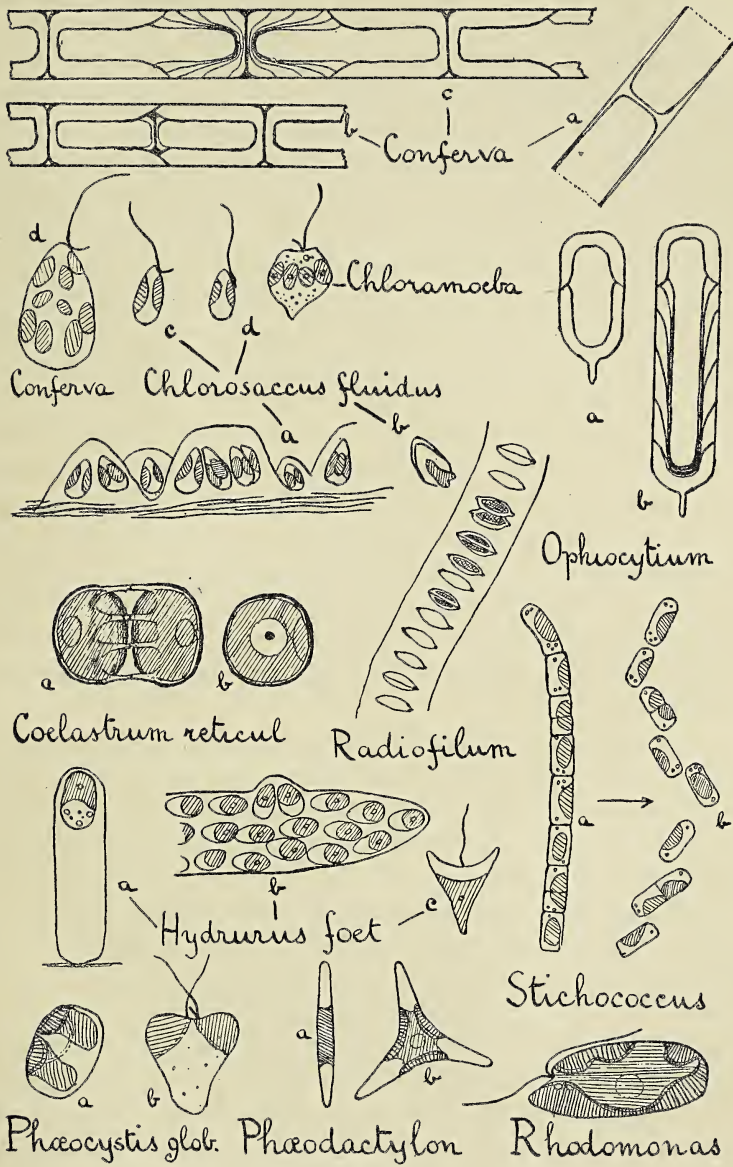 c
b Conferva a
d
Chloramoeba
c d
Conferva Chlorosaccus fluidus
a b
a
b
Ophiocytium
a b
Coelastrum reticul Radiofilum
a b
a b c
Hydrurus foet
Stichococcus
a b a b
Phæocystis glob. Phæodactylon Rhodomonas